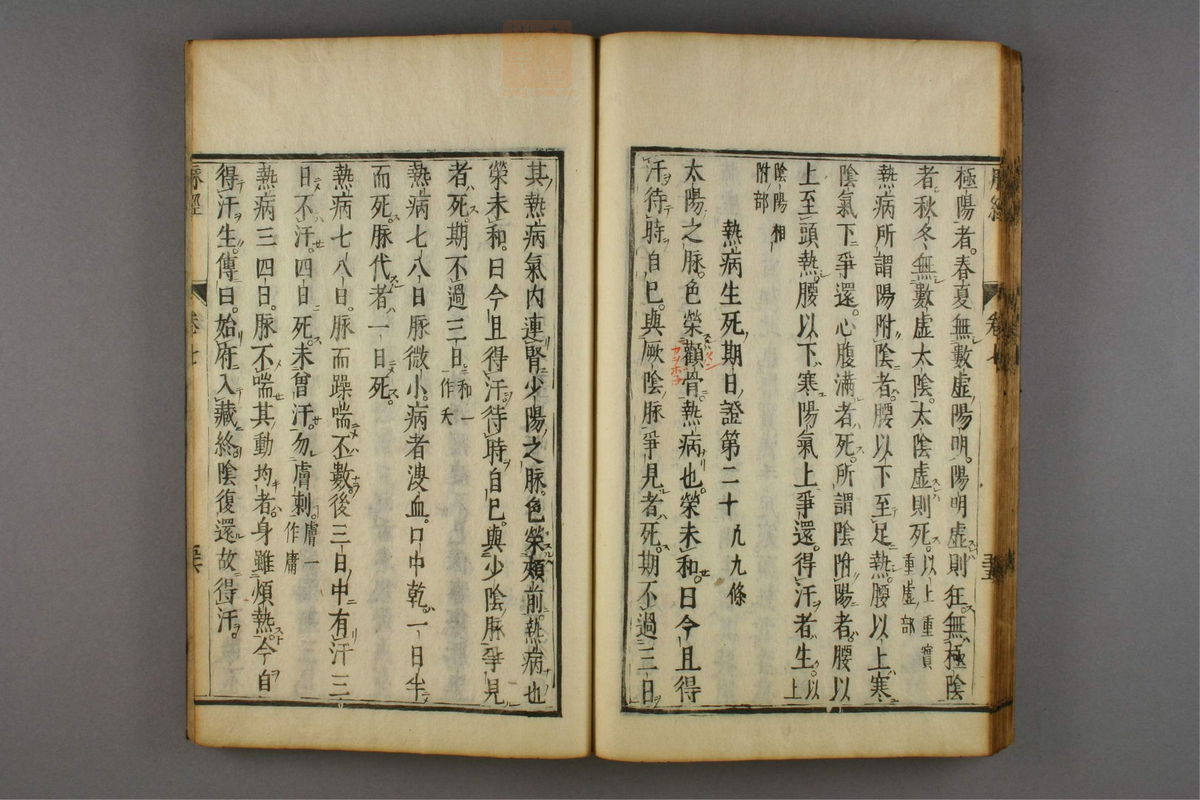 極陽者。春夏無數虛陽明。陽明虛則狂。無極陰
者。秋冬無數虛太陰。太陰虛則死。以上重實重虛部
熱病所謂陽附陰者。腰以下至足熱。腰以上寒
陰氣下爭還。心腹滿者死。所謂陰附陽者。腰以
上至頭熱。腰以下寒陽氣上爭還。得汗者生。以上
陰陽相附部
熱病生死期日證第二十九九條
太陽之脉。色榮顴骨。熱病也。榮未和。日今且得
汗待時自已。與厥陰脉爭見者死。期不過三日
其熱病氣内連腎少陽之脉。色榮頰前。熱病也
榮未和。日今且得汗。待時自已。與少陰脉爭見
者死。期不過三日和一作夭
熱病七八日脉微小。病者溲血。口中乾。一日半
而死。脉代者一日死。
熱病七八日。脉而躁喘不數。後三日中有汗三
日不汗。四日死。未曾汗。勿膚刺。膚一作庸
熱病三四日。脉不喘其動均者。身雖煩熱。今自
得汗生。傳曰。始府入藏終陰復還故得汗。